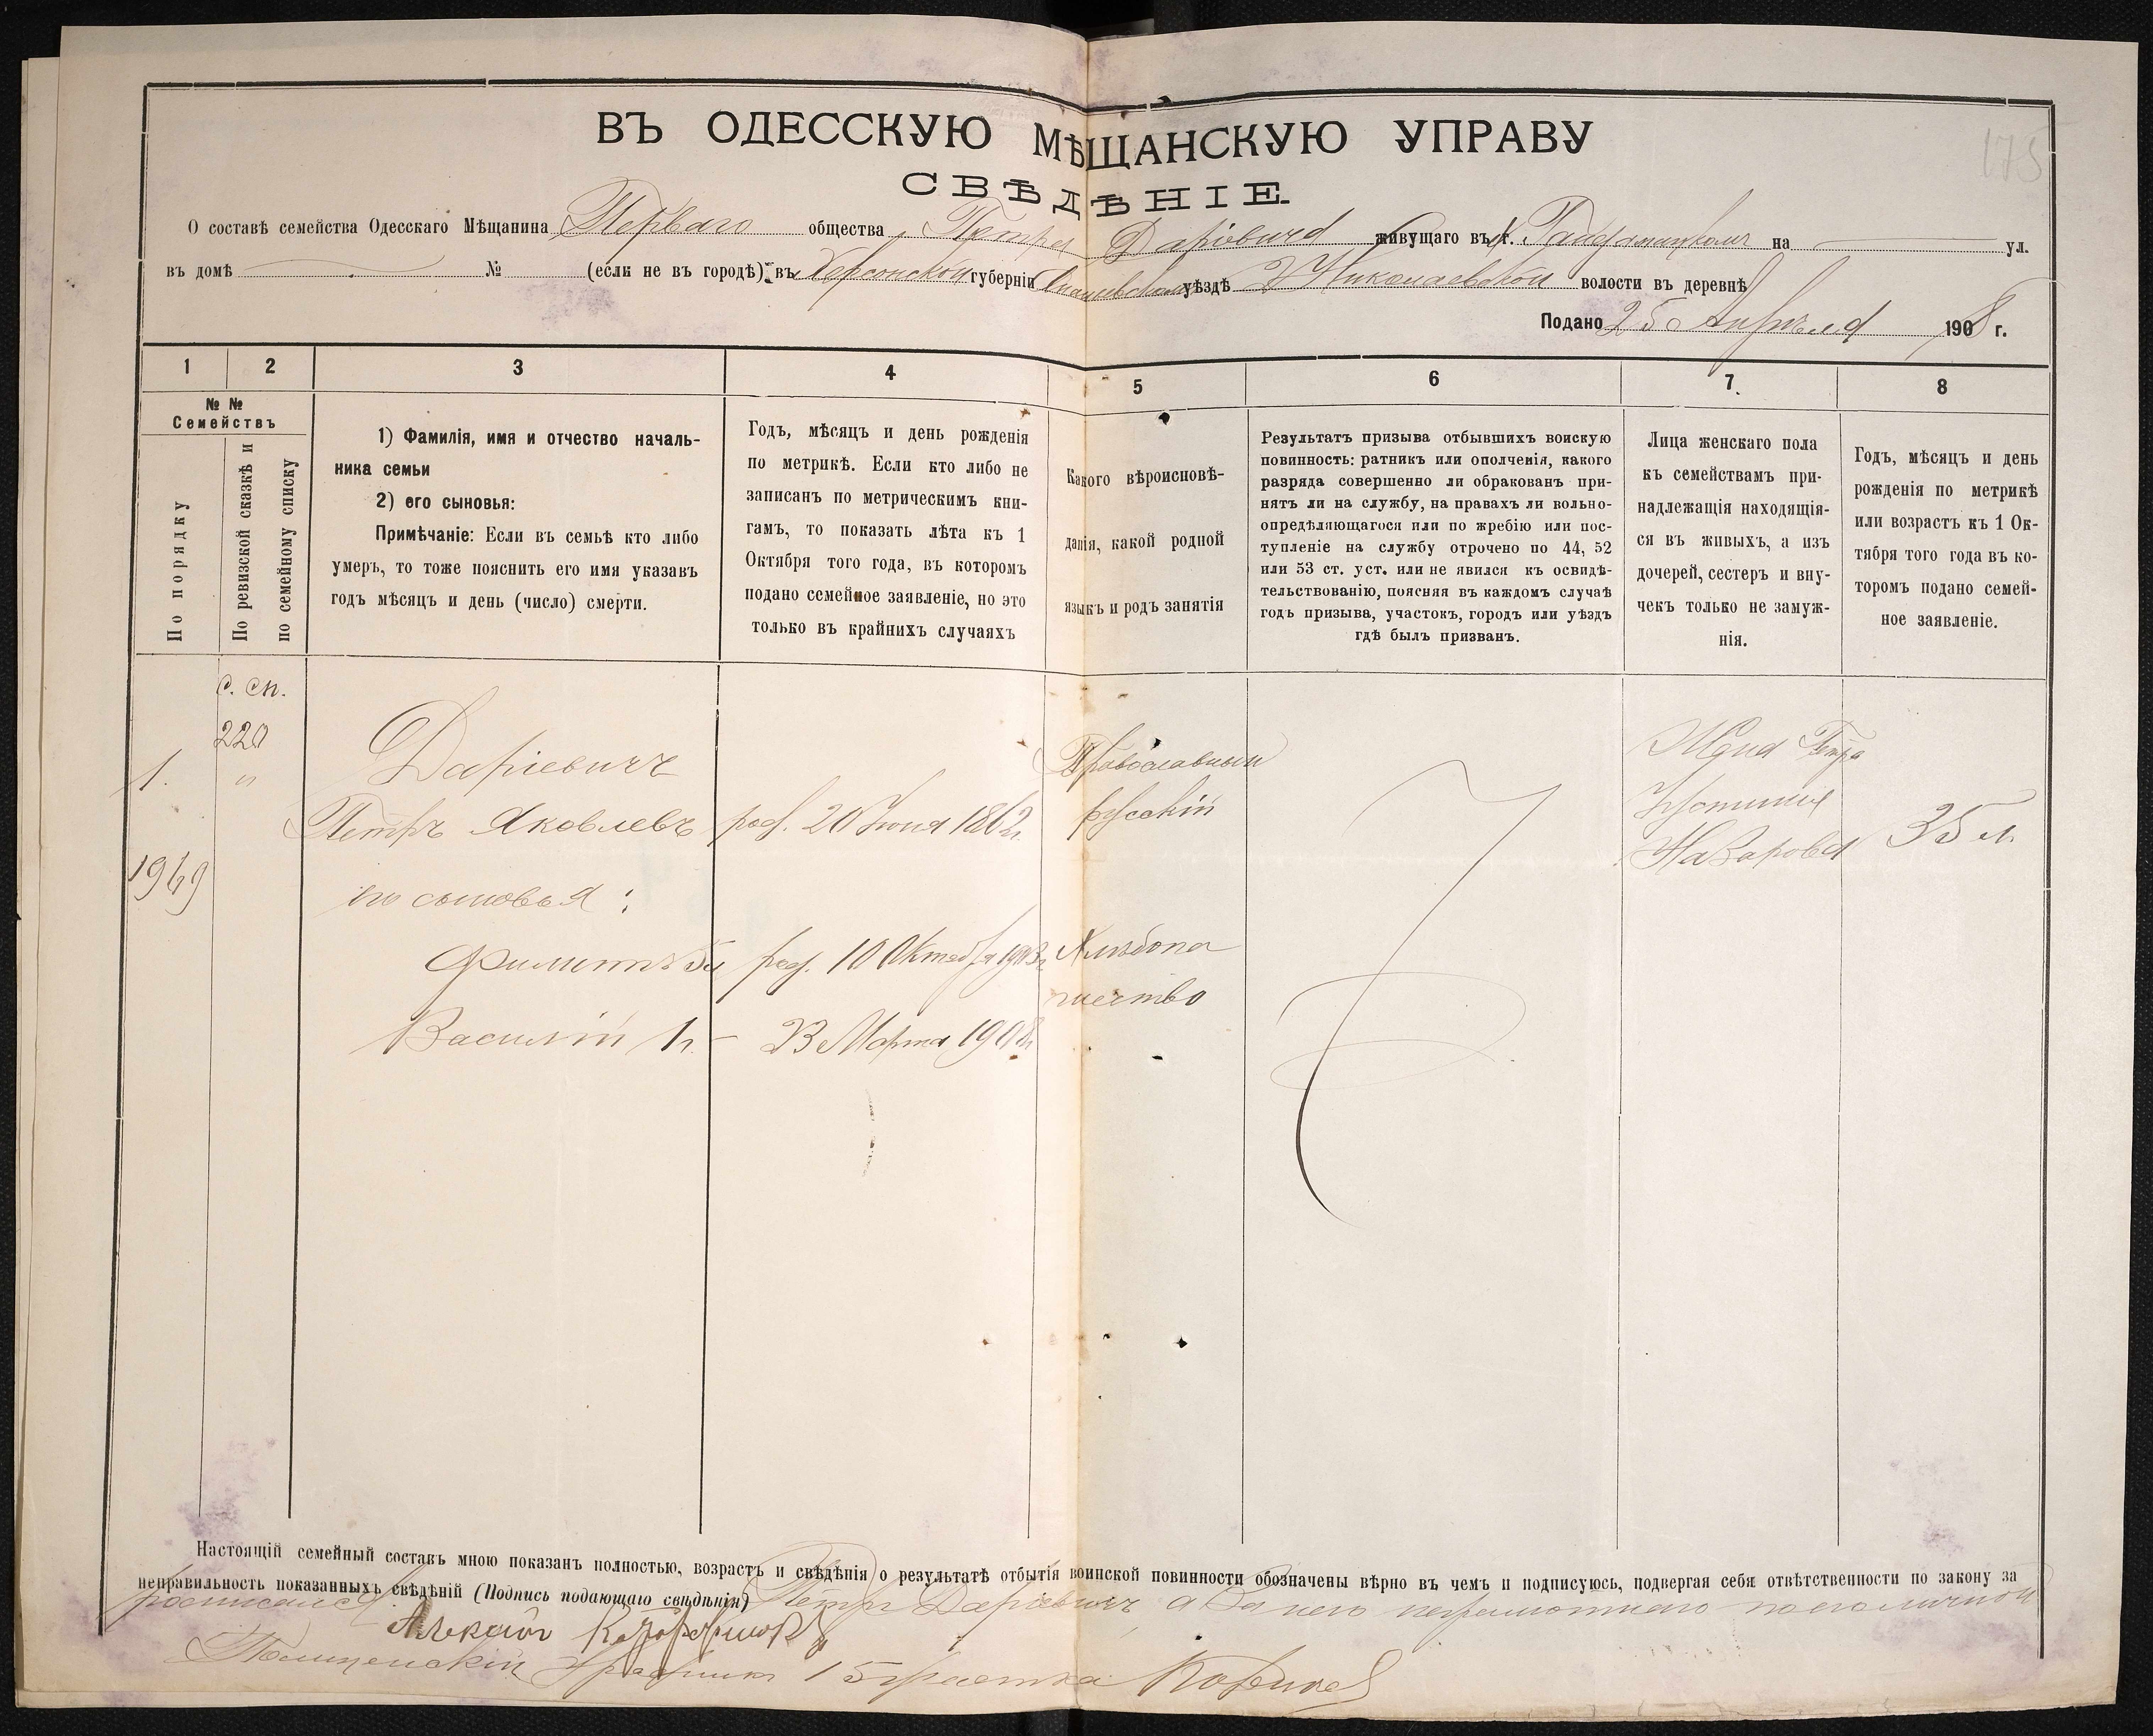 175
ВЪ ОДЕССКУЮ МѢЩАНСКУЮ УПРАВУ
СВѢДѢНІЕ.
О составѣ семейства Одесскаго Мѣщанина Перваго общества Петра Даріевича живущаго въ г. на ул.
въ домѣ № (если не въ городѣ): въ Херсонской губерніи Ананьевскомъ уѣздѣ Николаевской волости въ деревнѣ
Подано 25 Апрѣля 1908 г.
1 2 3 4 5 6 7. 8
№ №
Семействъ
По порядку
По ревизской сказкѣ и
по семейному списку
1) Фамилія, имя и отчество началь-
ника семьи
2) его сыновья:
Примѣчаніе: Если въ семьѣ кто либо
умеръ, то тоже пояснить его имя указавъ
годъ мѣсяцъ и день (число) смерти.
Годъ, мѣсяцъ и день рожденія
по метрикѣ. Если кто либо не
записанъ по метрическимъ кни-
гамъ, то показать лѣта къ 1
Октября того года, въ которомъ
подано семейное заявленіе, но это
только въ крайнихъ случаяхъ
Какого вѣроисновѣ-
данія, какой родной
языкъ и родъ занятія
Результатъ призыва отбывшихъ воискую
повинность: ратникъ или ополченія, какого
разряда совершенно ли обракованъ при-
нятъ ли на службу, на правахъ ли вольно-
опредѣляющагося или по жребію или пос-
тупленіе на службу отрочено по 44, 52
или 53 ст. уст. или не явился къ освидѣ-
тельствованію, поясняя въ каждомъ случаѣ
годъ призыва, участокъ, городъ или уѣздъ
гдѣ былъ призванъ.
Лица женскаго пола
къ семействамъ при-
надлежащія находящія-
ся въ живыхъ, а изъ
дочерей, сестеръ и вну-
чекъ только не замуж-
нія.
Годъ, мѣсяцъ и день
рожденія по метрикѣ
или возрастъ къ 1 Ок-
тября того года въ ко-
торомъ подано семей-
ное заявленіе.
с. сп.
220
1. "
1969
Даріевичъ
Петръ Яковлевъ род. 20 Іюня 1862 г.
его сыновья:
Филиппъ 5 л род. 10 Октября 1903 г.
Василій 1 г. — 23 Марта 1908 г.
Православный
русскій
Хлѣбопа
шество
Жена Петра
Назарова 35 л.
Настоящій семейный составъ мною показанъ полностью, возрастъ и свѣдѣнія о результатѣ отбытія воинской повинности обозначены вѣрно въ чемъ и подписуюсь, подвергая себя отвѣтственности по закону за
неправильность показанныхъ свѣдѣній (Подпись подающаго свѣдѣнія) Петръ Даріевичъ а за него неграмотнаго по его личной
росписался
Полицейскій Урядникъ 15 участка